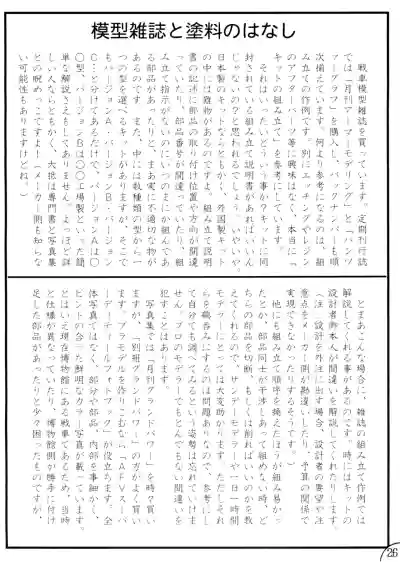 模型雑誌と塗料のはなし
戦車模型雑誌を買っています。定期刊行誌
では「月刊アーマーモデリング」と「パンツ
ァーグラフ」を購入し、バックナンバーも順
次揃えています。何より参考になるのは、組
み立ての作例です。別にエッチングやレジン
のアフターパーツ等に興味はなく、本当に「
キットの組み立て」を参考にしています。
それはいったいどういう事か？キットに同
封されている組み立て説明書があればいいん
じゃないの？と思われるでしょう。いやいや、
日本製のキットならともかく、外国製キット
の中には難物があるのですよ。組み立て説明
書の記述に部品の取り付け位置や方向が間違
っていたり、部品番号が間違っていたり、組
み立て指示がないのにいつのまにか組んであ
る部品があったりと、まあ実に不適切な物が
あるのです。また、中には数種類の型から一
つの型を選べるキットがありますが、そこで
もバージョンA・バージョンB・バージョン
C…と分けてあるだけで、バージョンAは〇
〇型、バージョンBは〇〇工場製といった簡
単な解説さえもしてありません。よっぽど詳
しい人ならともかく、大抵は専門書と写真集
との睨めっこですよ（メーカー側も知らな
い可能性もありますけどね。）
とまあこんな場合に、雑誌の組み立て作例では
解説してくれる事があるのです。時にはキットの
設計者御本人が間違いを解説してくれたりします。
（注：設計を外注に出す場合、設計者の要望や注
意点をメーカー側が勘違いしたり、予算の関係で
実現できなかったりするそうです。）
他にも組み立て順序を換えたほうが組み易かっ
たとか、部品同士が干渉しあって組めない時、ど
ちらの部品を切断、もしくは削ればいいのかを教
えてくれるので、サンデーモデラーや一日一時間
モデラーにとっては大変助かります。ただしそれ
らを鵜呑みにするのは問題ありなので、参考にし
て自分でも調べてみるという姿勢は忘れていけま
せん。プロのモデラーでもとんでもない間違いを
犯すことはあります。
写真集では「月刊グランドパワー」を時々買い
ますが、「別冊グランドパワー」の方がよく買い
ます。プラモデルを作りこむなら「AFVスーパ
ーディティールフォトブック」が役立ちます。全
体写真ではなく、部分や部品、内部を事細かく、
ピントの合った鮮明なカラー写真が載っています。
とはいえ現在博物館にある戦車であるため、当時
と仕様が異なっていたり、博物館側が勝手に付け
足した部品があったりと少々困ったものですが、
26